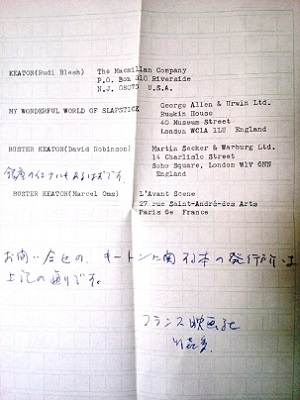 KEATON(Rudi Blesh) The Macmillan Company
P.O. Box 310 Riverside
N.J. 08075 U.S.A.
MY WONDERFUL WORLD OF SLAPSTICK George Allen & Unwin Ltd.
Ruskin House
40 Museum Street
London WC1A 1LU England
BUSTER KEATON(David Robinson) Martin Secker & Warburg Ltd.
14 Charlisle Street
Soho Square, London W1V 6NN
England
銀座のイエナにもあるはずです
BUSTER KEATON(Marcel Oms) L'Avant Scene
27 rue Saint-André-des Arts
Paris 6e France
お問い合せの、キートンに関する本の発行所は
上記の通りです。
フランス映画社